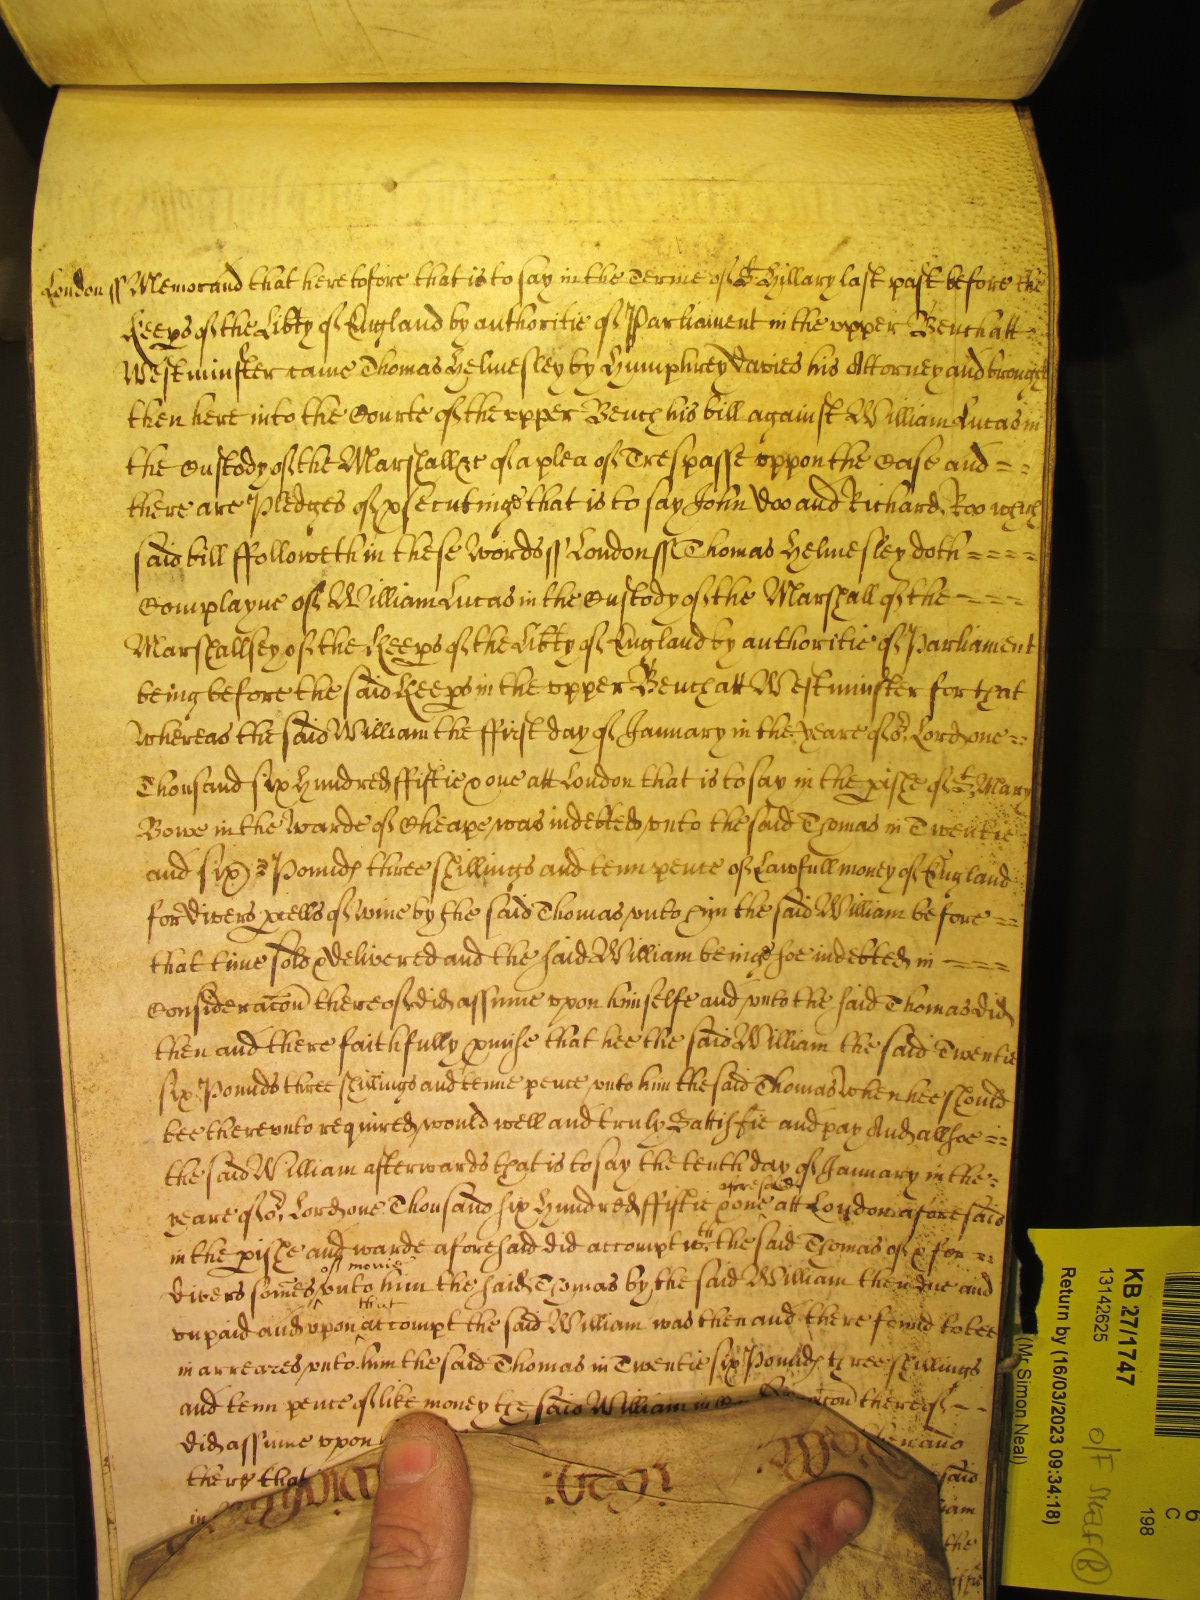 London ss Memorand that heretofore that is to say in the Terme of St Hillary last past before the
Keeps of the Libty of England by authoritie of Parliament in the upper Bench att
Westminster came Thomas Helmesley by Humphrey Davies his Attorney and brought
then here into the Courte of the upper Bench his bill against William Lucas in
the Custody of the Marshall &c of a plea of Trespasse uppon the Case and = =
there are Pledges of psecutinge that is to say John Doo and Richard Roo which
said bill ffolloweth in these words ss London ss Thomas Helmesley doth = = = =
Complayne of William Lucas in the Custody of the Marshall of the - - - -
Marshallsey of the Keeps of the Libty of England by authoritie of Parliament
being before the said Keeps in the upper Bench att Westminster for that
whereas the said William the ffirst day of January in the yeare of or Lord one =
Thousand six hundred ffiftie & one att London that is to say in the pishe of St Mary
Bowe in the Warde of Cheape was indebted unto the said Thomas in Twentie
and six Pounds three shillings and tenn pence of Lawfull money of England
for divers pcells of wine by the said Thomas unto him the said William before = =
that time sold & delivered and the said William beinge soe indebted in - - - -
Consideracon thereof did assume upon himselfe and unto the said Thomas did
then and there faithfully pmise that hee the said William the said Twentie
six Pounds three shillings and tenne pence unto him the said Thomas when hee should
bee thereunto required would well and truly Sattisfie and pay And allsoe = =
the said William afterwards that is to say the tenth day of January in the =
aforesaid
yeare of or Lord one Thousand six Hundred ffiftie & one att London aforesaid
in the pishe and warde aforesaid did accompt wth the said Thomas of & for = =
of monie
divers somes unto him the said Thomas by the said William then due and
that
unpaid and upon accompt the said William was then and there found to bee
in arreares unto him the said Thomas in Twentie six Pounds three shillings
and tenn pence of like money the said William in thereof - -
did assume upon
there that said
in iam
the
1650
KB 27/1747
13142625
Return by (16/03/2023 09:34:18)
(Mr Simon Neal)
198
C
6